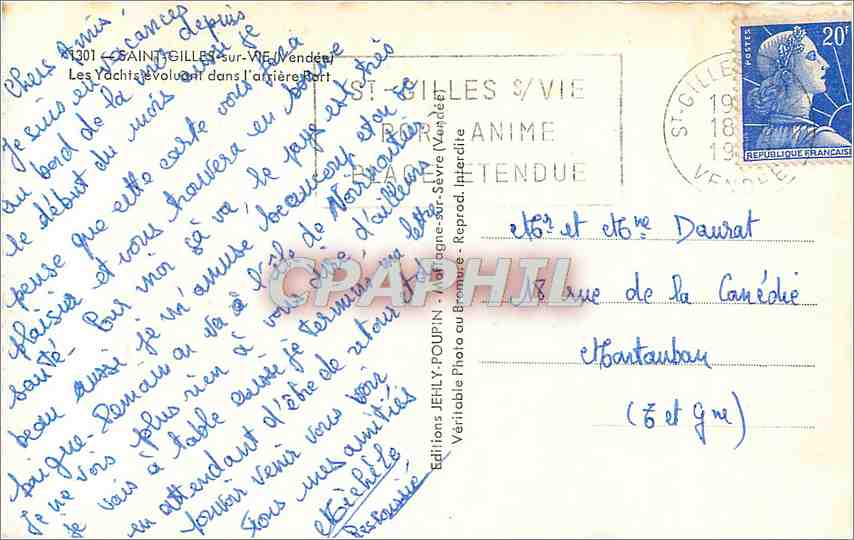 1301 — SAINT-GILLES-sur-VIE (Vendée)
Les Yachts évoluant dans l'arrière Port
Chers Amis!
Je suis en vacances
au bord de la mer depuis
le début du mois aussi je
pense que cette carte vous
plaisir et vous trouvera en bonne
santé - Pour moi sà va le pays est très
beau aussi je m'amuse beaucoup et on se
baigne - Demain on va à l'île de Noirmoutier
Je ne vois plus rien à vous dire d'ailleurs
je vais à table aussi je termine ma lettre
en attendant d'être de retour
pouvoir venir vous voir
Tous mes amitiés
Michèle
ST-GILLES S/VIE
PORT ANIME
PLAGE ETENDUE
ST-GILLES
19
18
19
VENDEE
POSTES
20F
REPUBLIQUE FRANÇAISE
Editions JEHLY-POUPIN - Mortagne-sur-Sèvre (Vendée)
Véritable Photo au Bromure - Reprod. Interdite
CPAPHIL
Mr et Mme Daurat
18 rue de la Comédie
Montauban
(T et Gne)